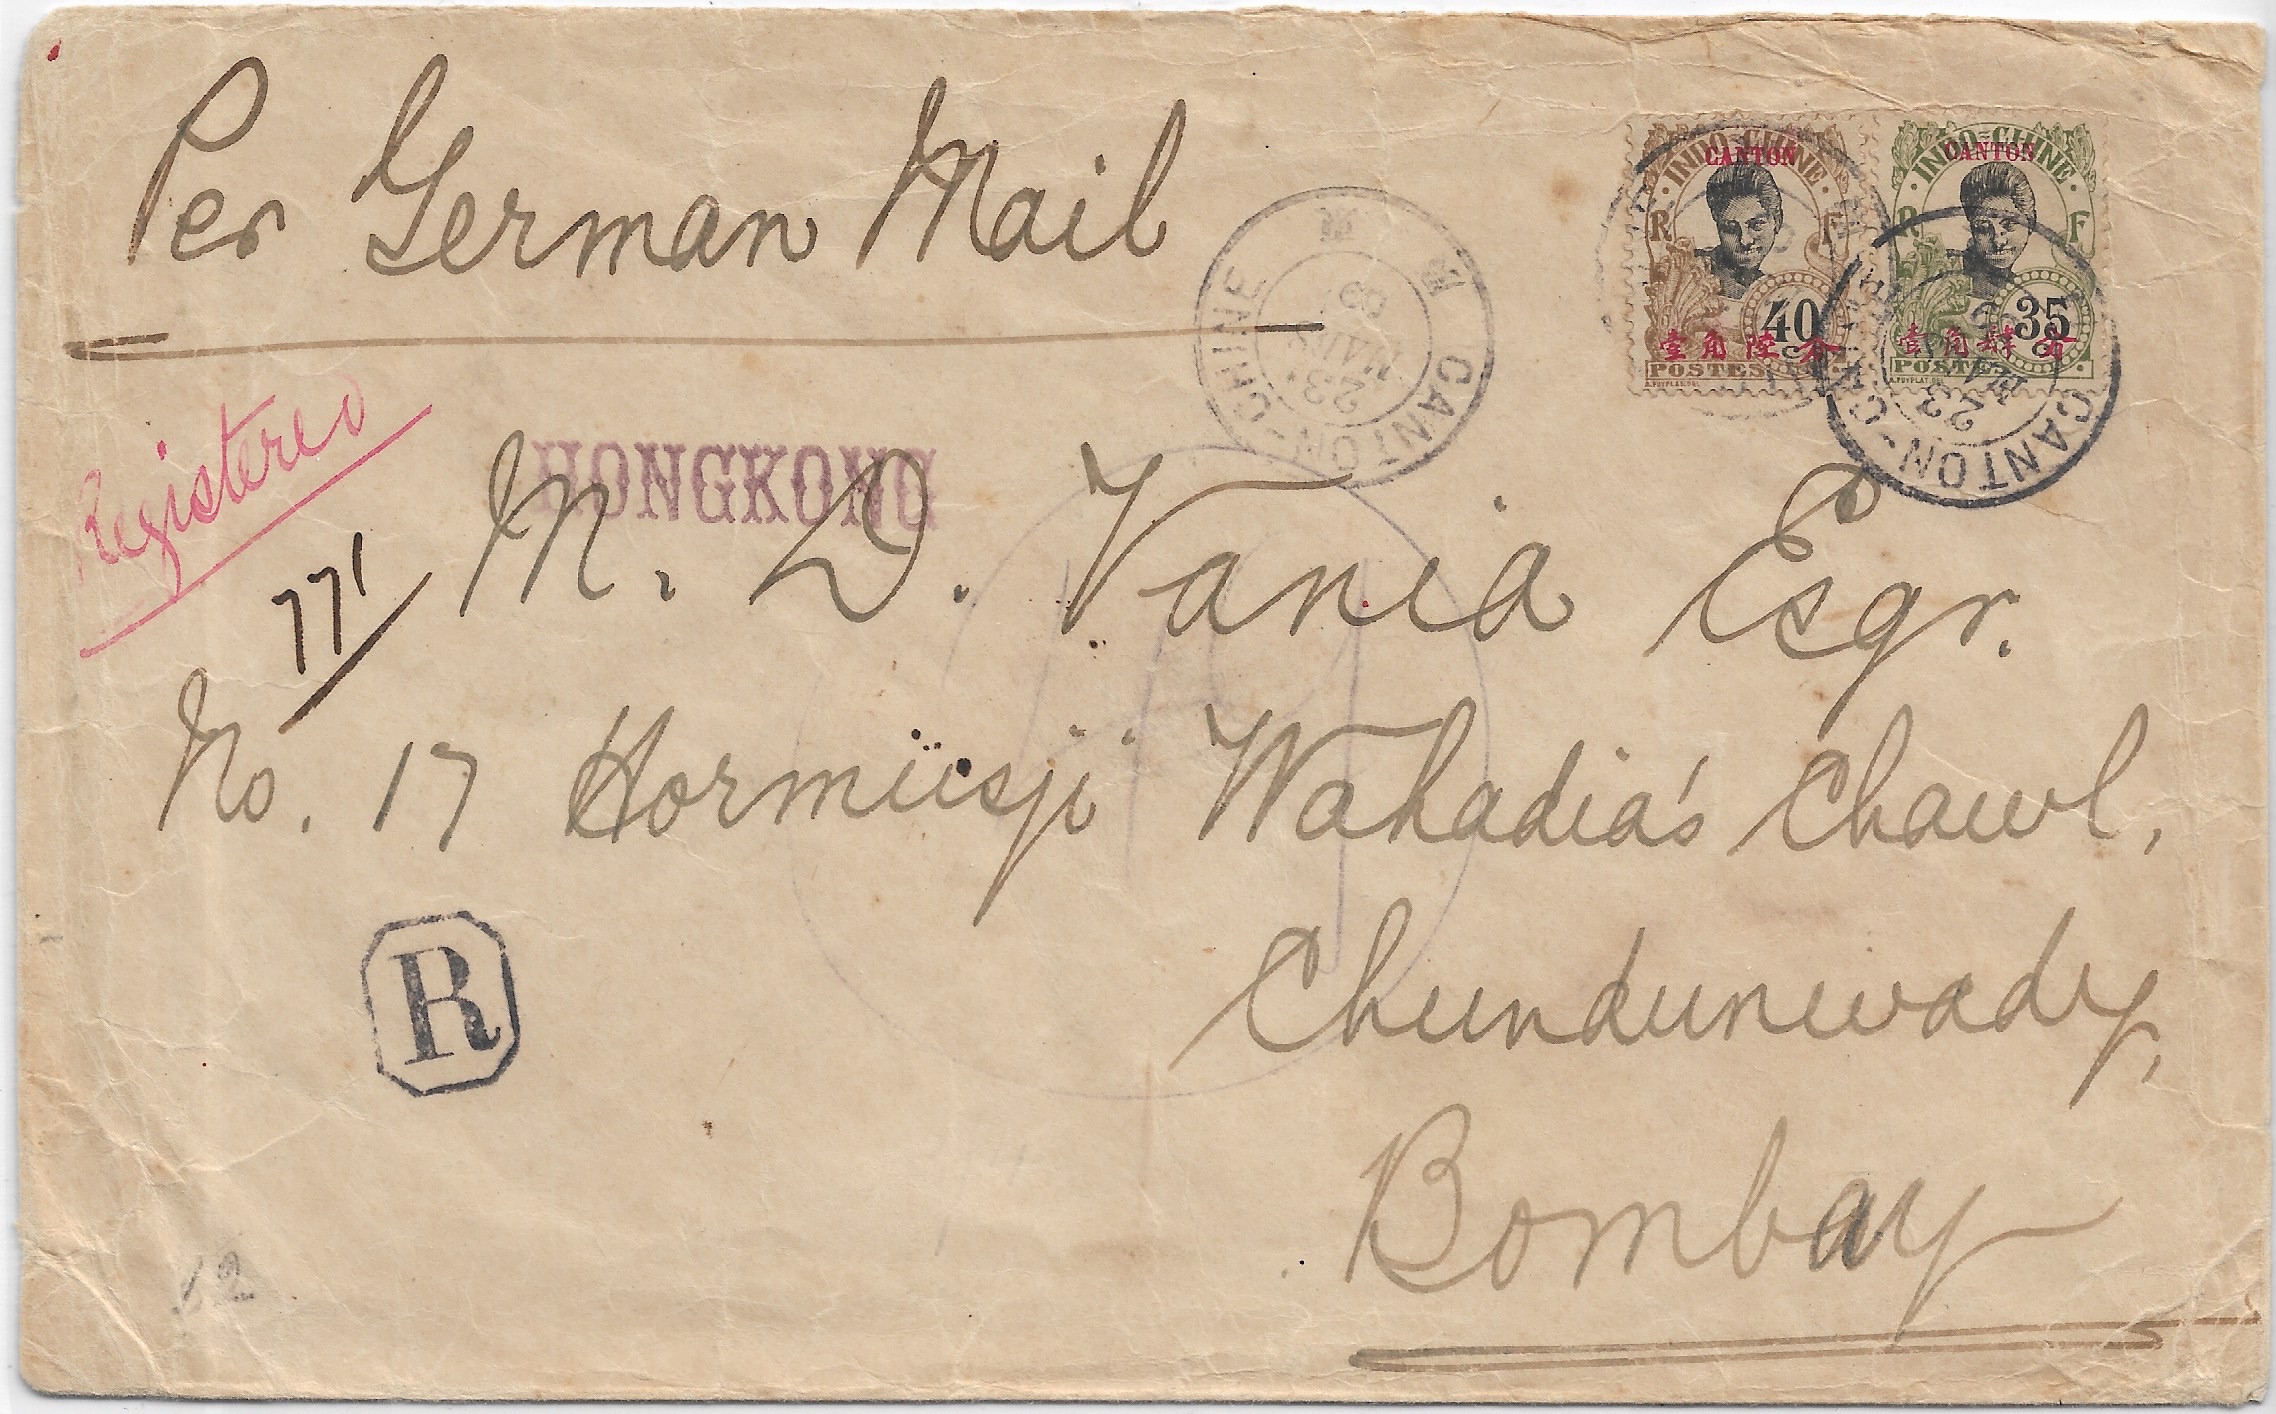 Per German Mail
CANTON-CHINE
23
MARS
09
INDO-CHINE
CANTON
R F
40
壹角陸分
POSTES
INDO-CHINE
CANTON
R F
35
壹角肆分
POSTES
CANTON-CHINE
23
Registered
771
HONGKONG
M. D. Vania Esqr.
No. 17 Hormusji Wahadia's Chawl,
Chundunwady,
R
Bombay
12